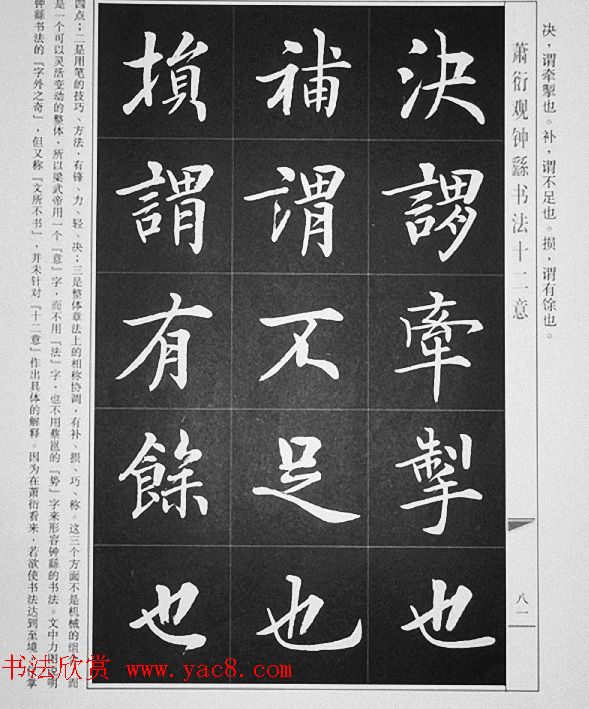 决，谓牵掣也。补，谓不足也。损，谓有馀也。
萧衍观钟繇书法十二意
八一
決謂牽掣也
補謂不足也
損謂有餘也
四点；二是用笔的技巧、方法，有锋、力、轻、决；三是整体章法上的相称协调，有补、损、巧、称。这三个方面不是机械的组合，而
是一个可以灵活变动的整体，所以梁武帝用一个『意』字，而不用『法』字，也不用蔡邕的『势』字来形容钟繇的书法。文中力图说明
钟繇书法的『字外之奇』，但又称『文所不书』，并未针对『十二意』作出具体的解释。因为在萧衍看来，若欲使书法达到至境，掌
书法欣赏 www.yac8.com